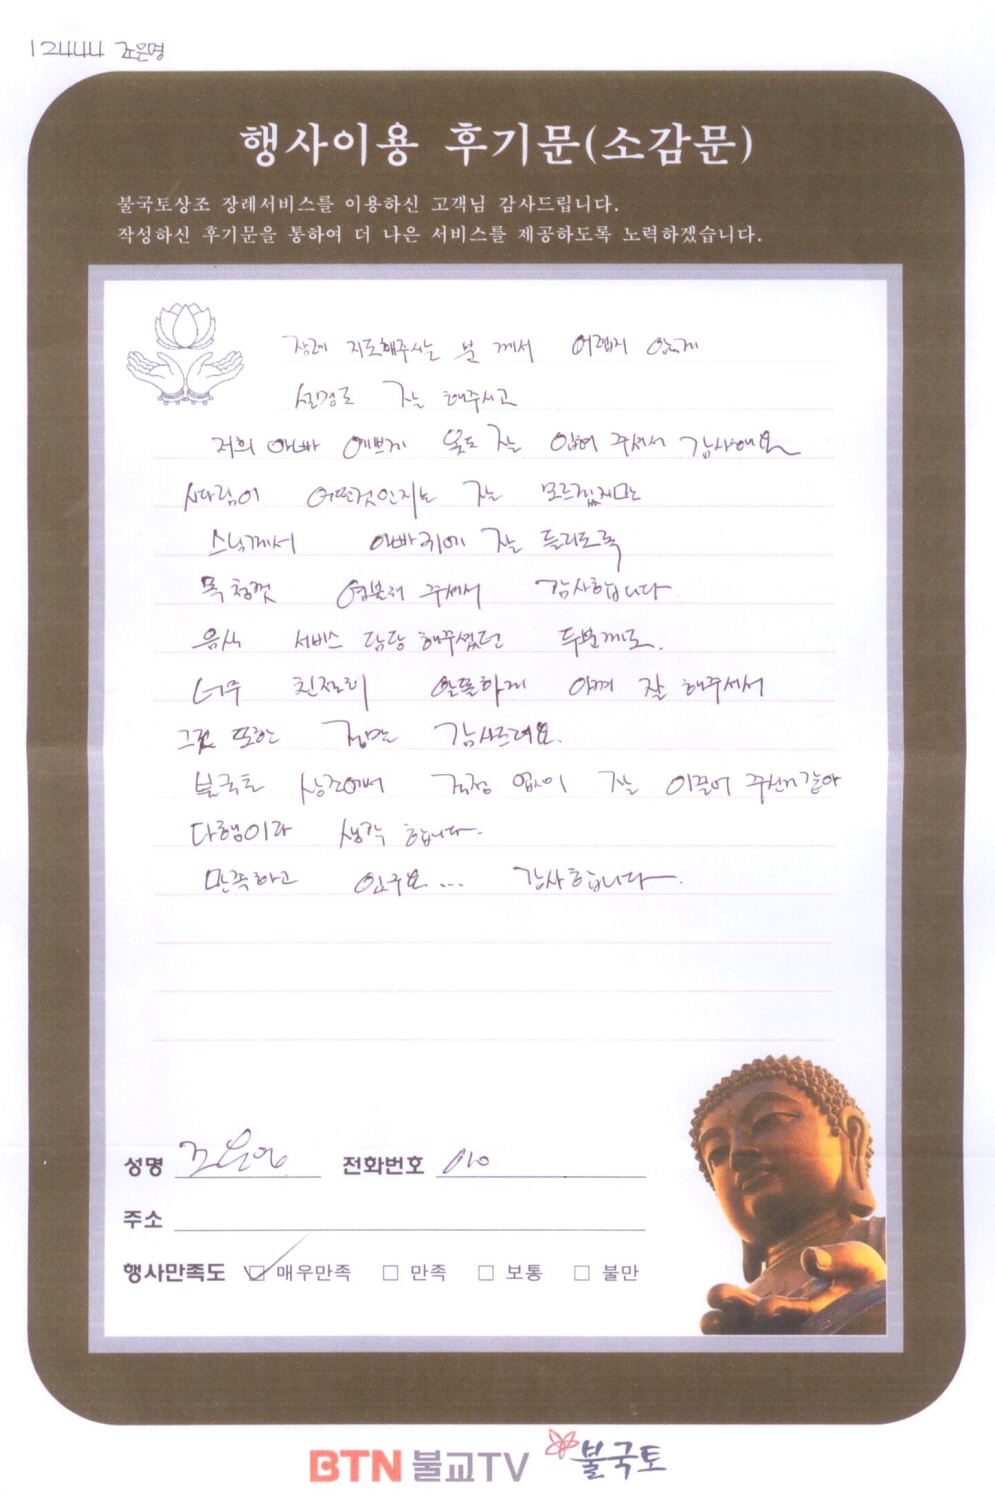 12444 조은영
행사이용 후기문(소감문)
불국토상조 장례서비스를 이용하신 고객님 감사드립니다.
작성하신 후기문을 통하여 더 나은 서비스를 제공하도록 노력하겠습니다.
장례 지도해주시는 분 께서 어렵지 않게
설명도 잘 해주시고
저희 아빠 예쁘게 옷도 잘 입혀 주셔서 감사해요
시다림이 어떤것인지는 잘 모르겠지만
스님께서 아빠귀에 잘 들리도록
목청껏 염불해 주셔서 감사합니다
음식 서비스 담당 해주셨던 두분께도.
너무 친절히 알뜰하게 아껴 잘 해주셔서
그것 또한 정말 감사드려요.
불국토 상조에서 걱정 없이 잘 이끌어 주신거 같아
다행이라 생각 합니다.
만족하고 있구요... 감사합니다.
성명 조은영 전화번호 010
주소
행사만족도 매우만족 만족 보통 불만
BTN 불교TV 불국토